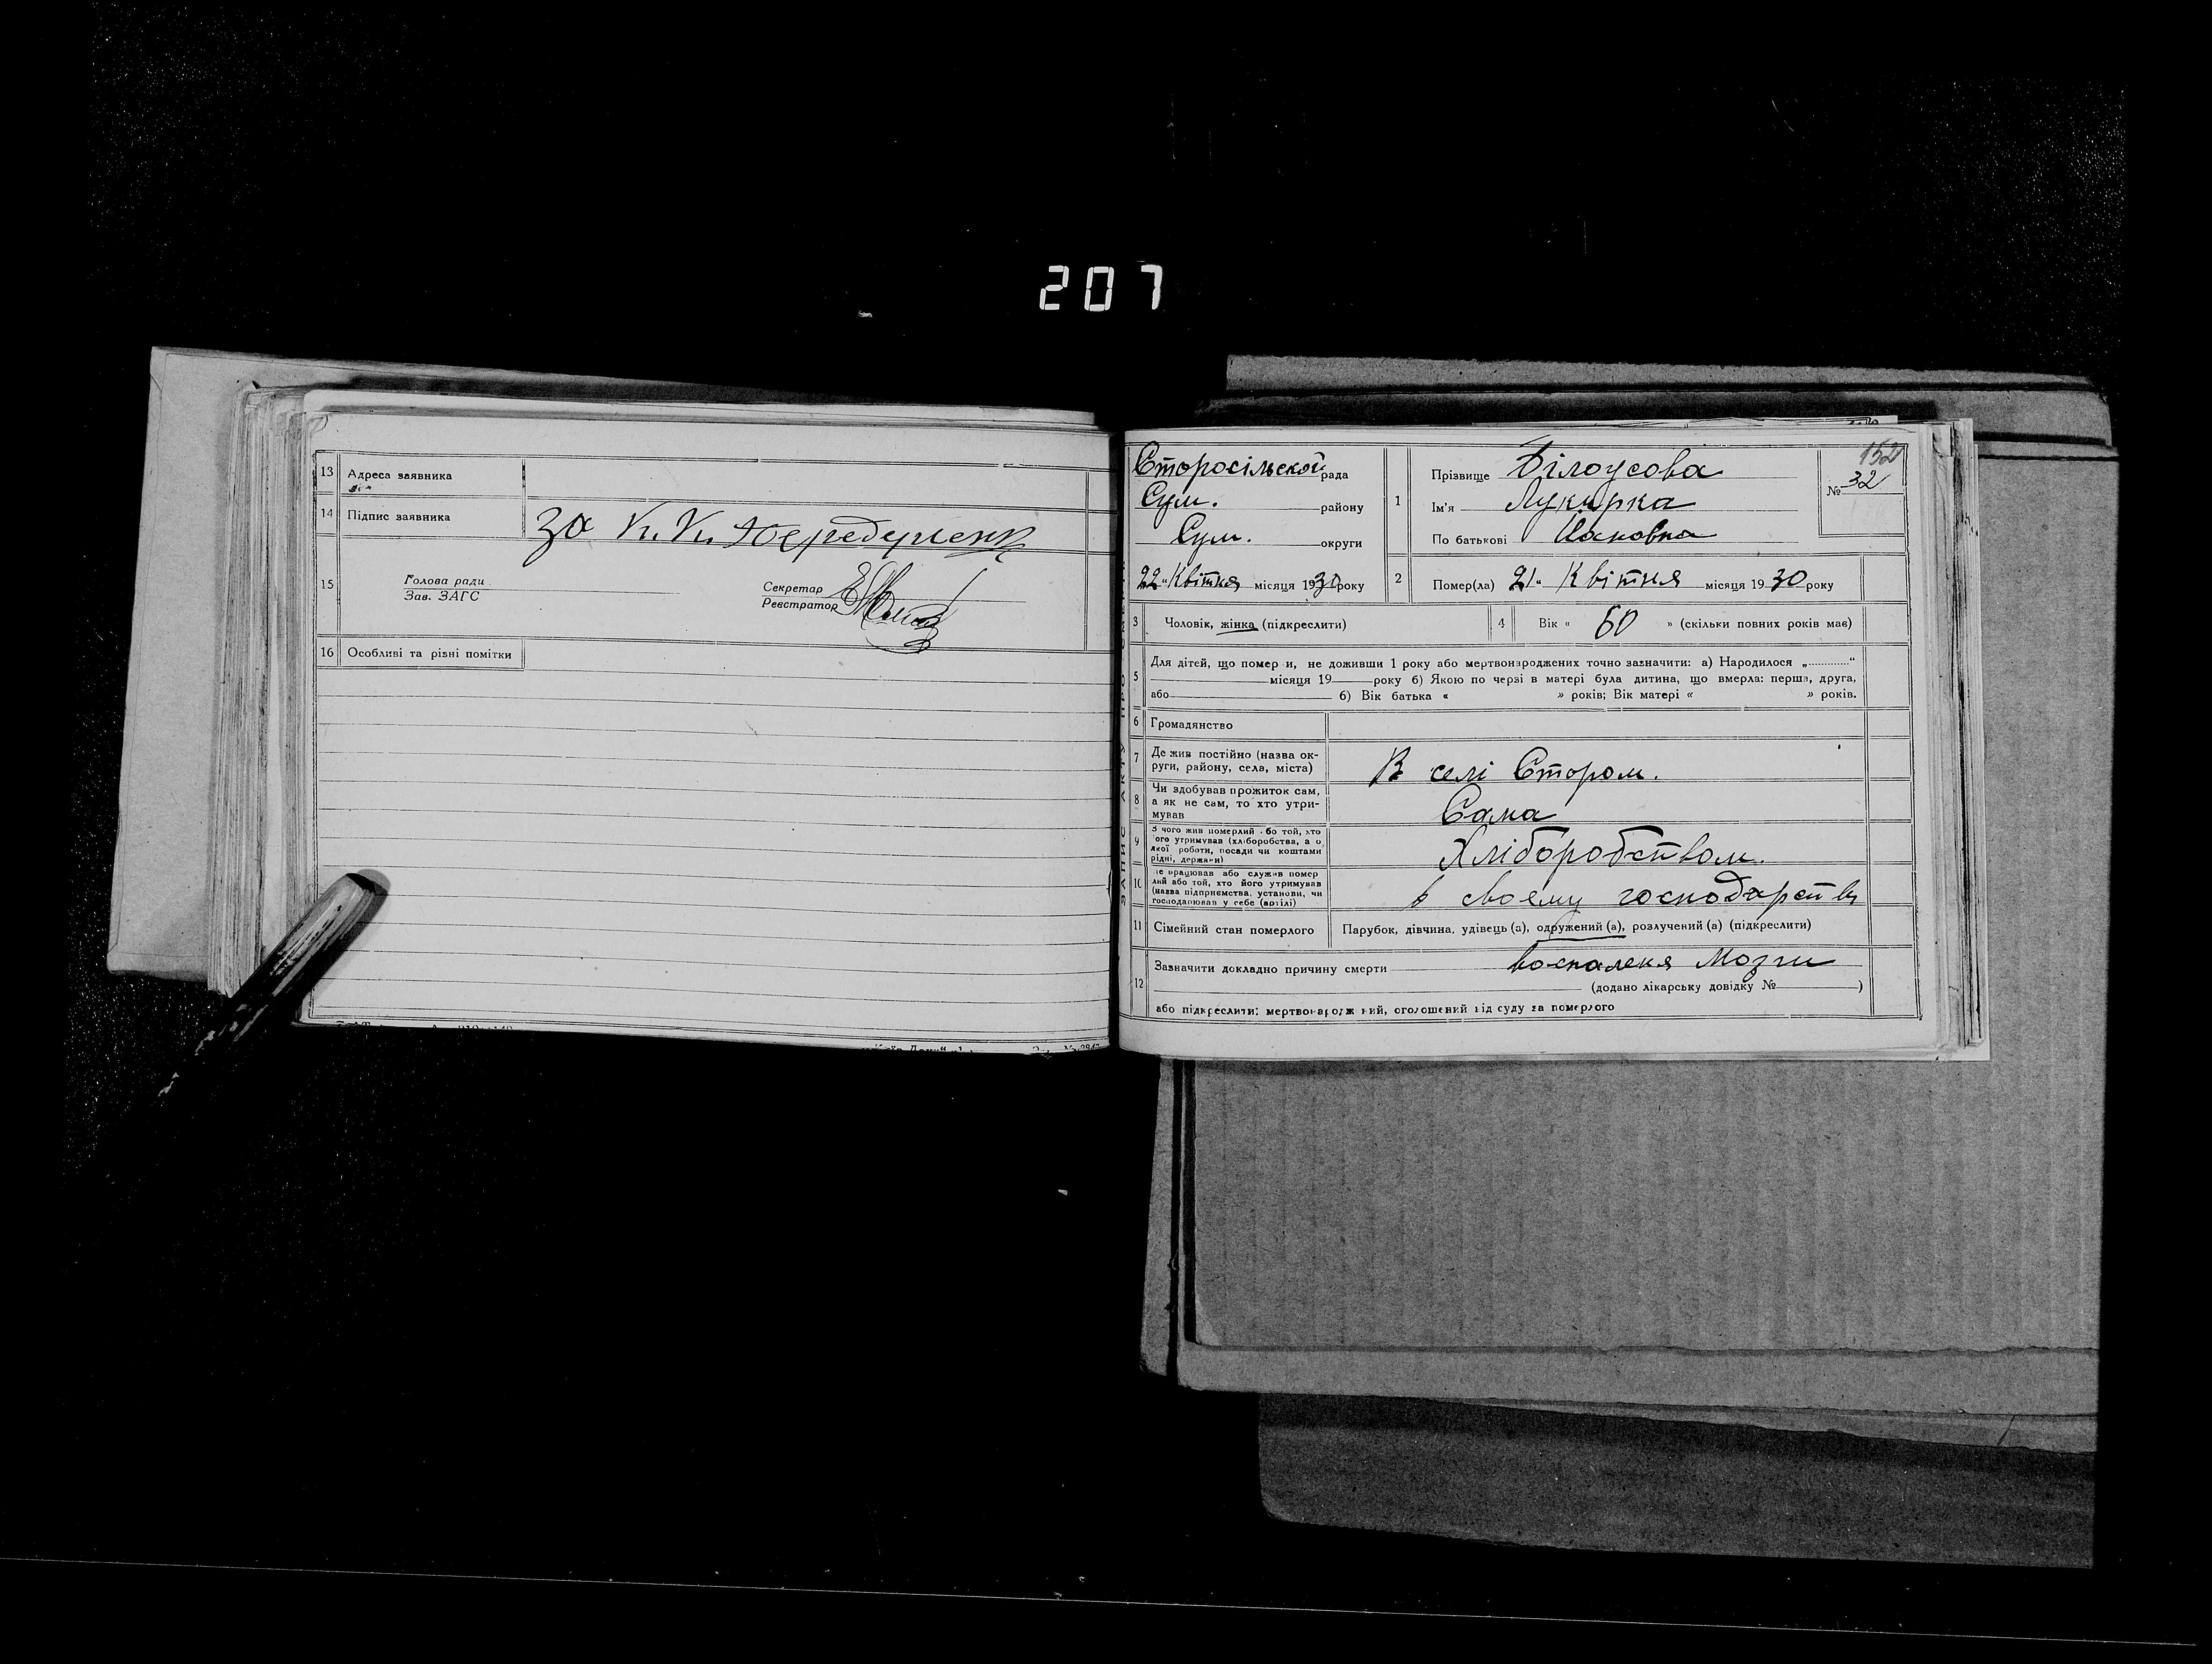 207
13 Адреса заявника
14 Підпис заявника за
15 Голова ради
Зав. ЗАГС
Секретар
Реєстратор
16 Особливі та різні помітки
152
№ 32
Старосільской рада
Сум. району
Сум. округи
22 " Квітня місяця 1930 року
1 Прізвище Білоусова
Ім'я
По батькові
2 Помер(ла) 21 " Квітня місяця 1930 року
3 Чоловік, жінка (підкреслити)
4 Вік « 60 » (скільки повних років має)
5 Для дітей, що помер и, не доживши 1 року або мертвонароджених точно зазначити: а) Народилося „ “
місяця 19 року б) Якою по черзі в матері була дитина, що вмерла: перша, друга,
або б) Вік батька « » років; Вік матері « » років.
6 Громадянство
7 Де жив постійно (назва ок-
руги, району, села, міста) В селі Стором.
8 Чи здобував прожиток сам,
а як не сам, то хто утри-
мував Сама
9 З чого жив померлий бо той, хто
ого утримував (хліборобства, а о
якої роботи, посади чи коштами
рідні, держави) Хліборобством.
10 де працював або служив помер
лий або той, хто його утримував
(назва підприємства, установи, чи
господарював у себе (артілі) в своєму господарстві
11 Сімейний стан померлого Парубок, дівчина, удівець (а), одружений (а), розлучений (а) (підкреслити)
12 Зазначити докладно причину смерти воспаленя Мозги
(додано лікарську довідку № )
або підкреслити: мертвонародж ний, оголошений від суду за померлого